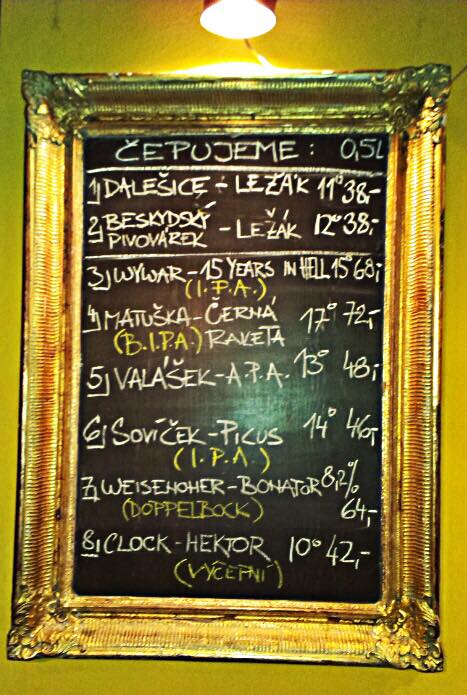 ČEPUJEME: 0,5L
1) DALEŠICE - LEŽÁK 11° 38,-
2) BESKYDSKÝ
PIVOVÁREK - LEŽÁK 12° 38,-
3) WYWAR - 15 YEARS IN HELL 15° 68,-
(I.P.A.)
4) MATUŠKA - ČERNÁ 17° 72,-
(B.I.P.A.) RAKETA
5) VALÁŠEK - A.P.A. 13° 48,-
6) SOVÍČEK - PICUS 14° 46,-
(I.P.A.)
7) WEISENOHER - BONATOR 8,2%
(DOPPELBOCK) 64,-
8) CLOCK - HEKTOR 10° 42,-
(VÝČEPNÍ)